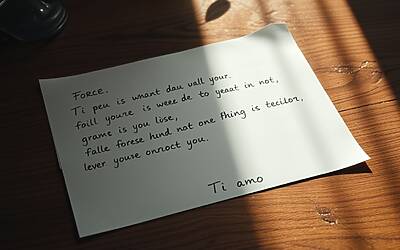 FORCE.
Ti peu is wnant dau vall your.
faill youre is weee de to yeaat in not,
grams is you lise,
falle forese hund not one fhing is tecilor,
lever youse onroct you.
Ti amo